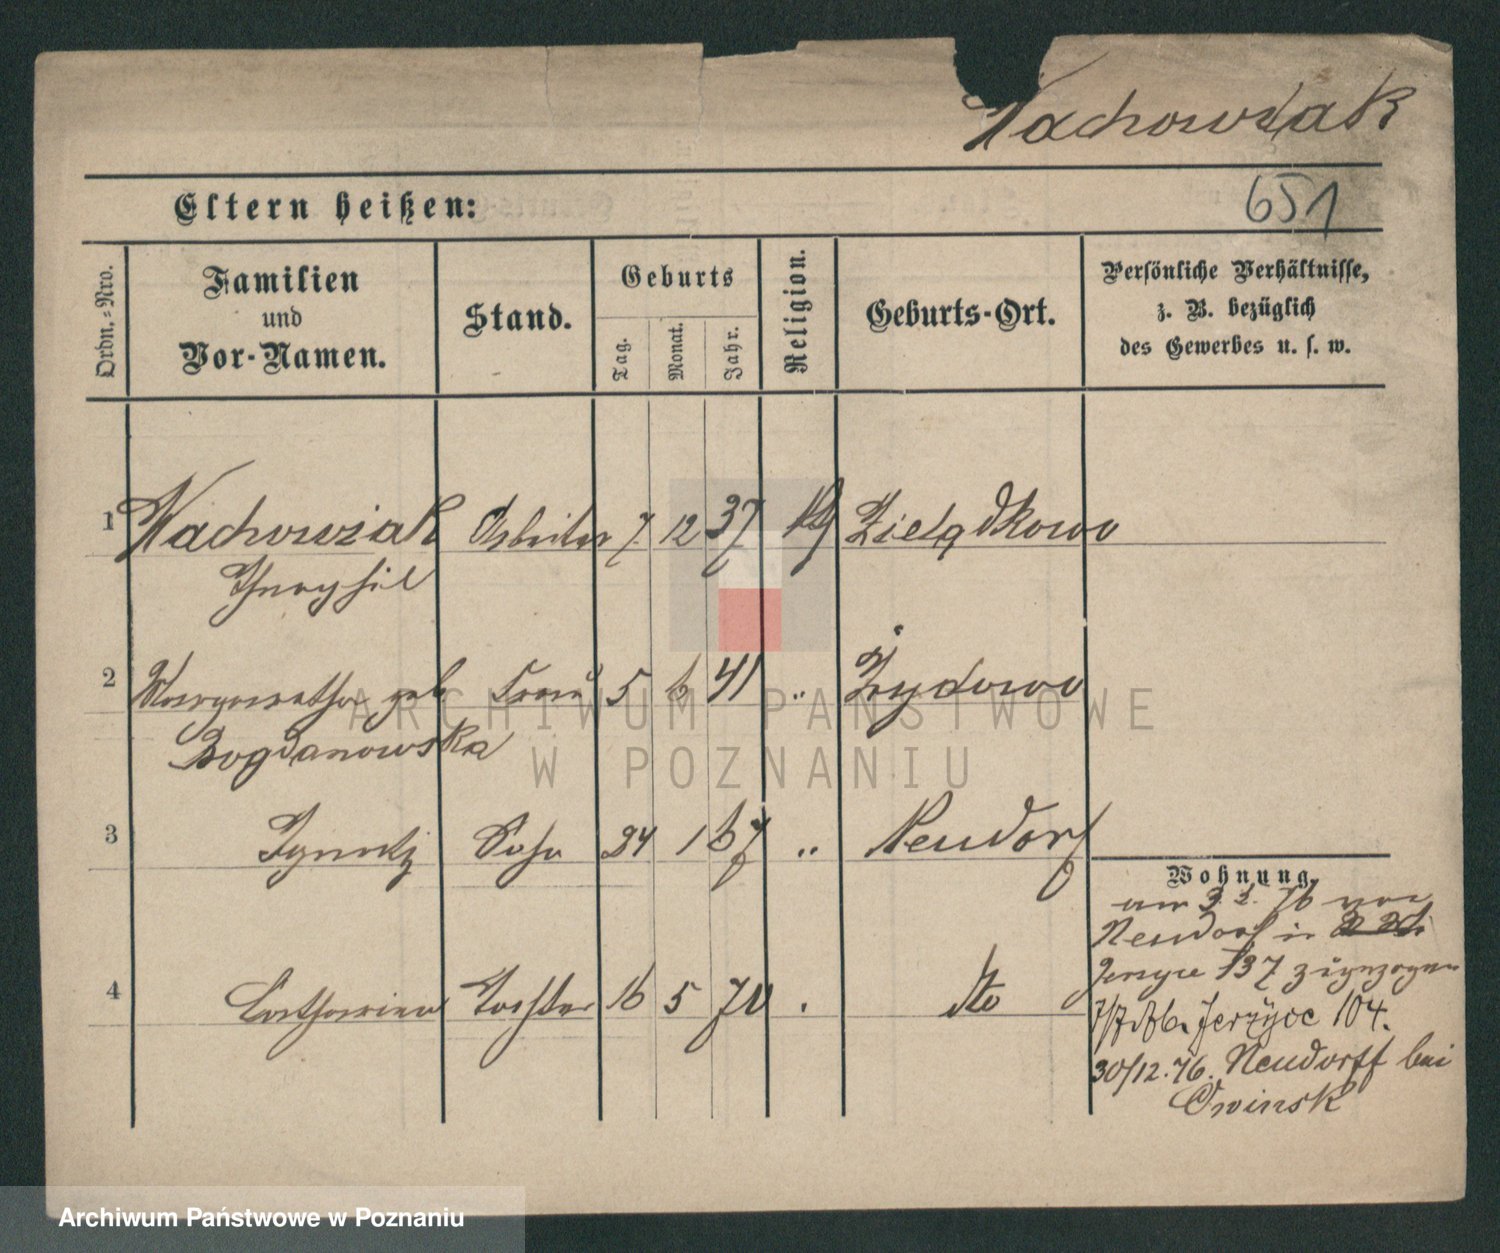 Wachowiak
651
Eltern heißen:
Ordn.-Nro.
Familien
und
Vor-Namen.
Stand.
Geburts
Tag.
Monat.
Jahr.
Religion.
Geburts-Ort.
Persönliche Verhältnisse,
z. B. bezüglich
des Gewerbes u. s. w.
1 Wachowiak Arbeiter 7 12 37 Zielądkowo
2 Margaretha geb. Frau 5 6 41 " Żydowo
Bogdanowska
3 Ignatz Sohn 24 1 67 " Neudorf
4 Catharina Tochter 16 5 70 dto
Wohnung.
am 3. 76 von
Neudorf in
Jersyce 137 zugezogen
Jerzyce 104.
30/12.76. Neudorff bei
Owinsk
ARCHIWUM PAŃSTWOWE
W POZNANIU
Archiwum Państwowe w Poznaniu